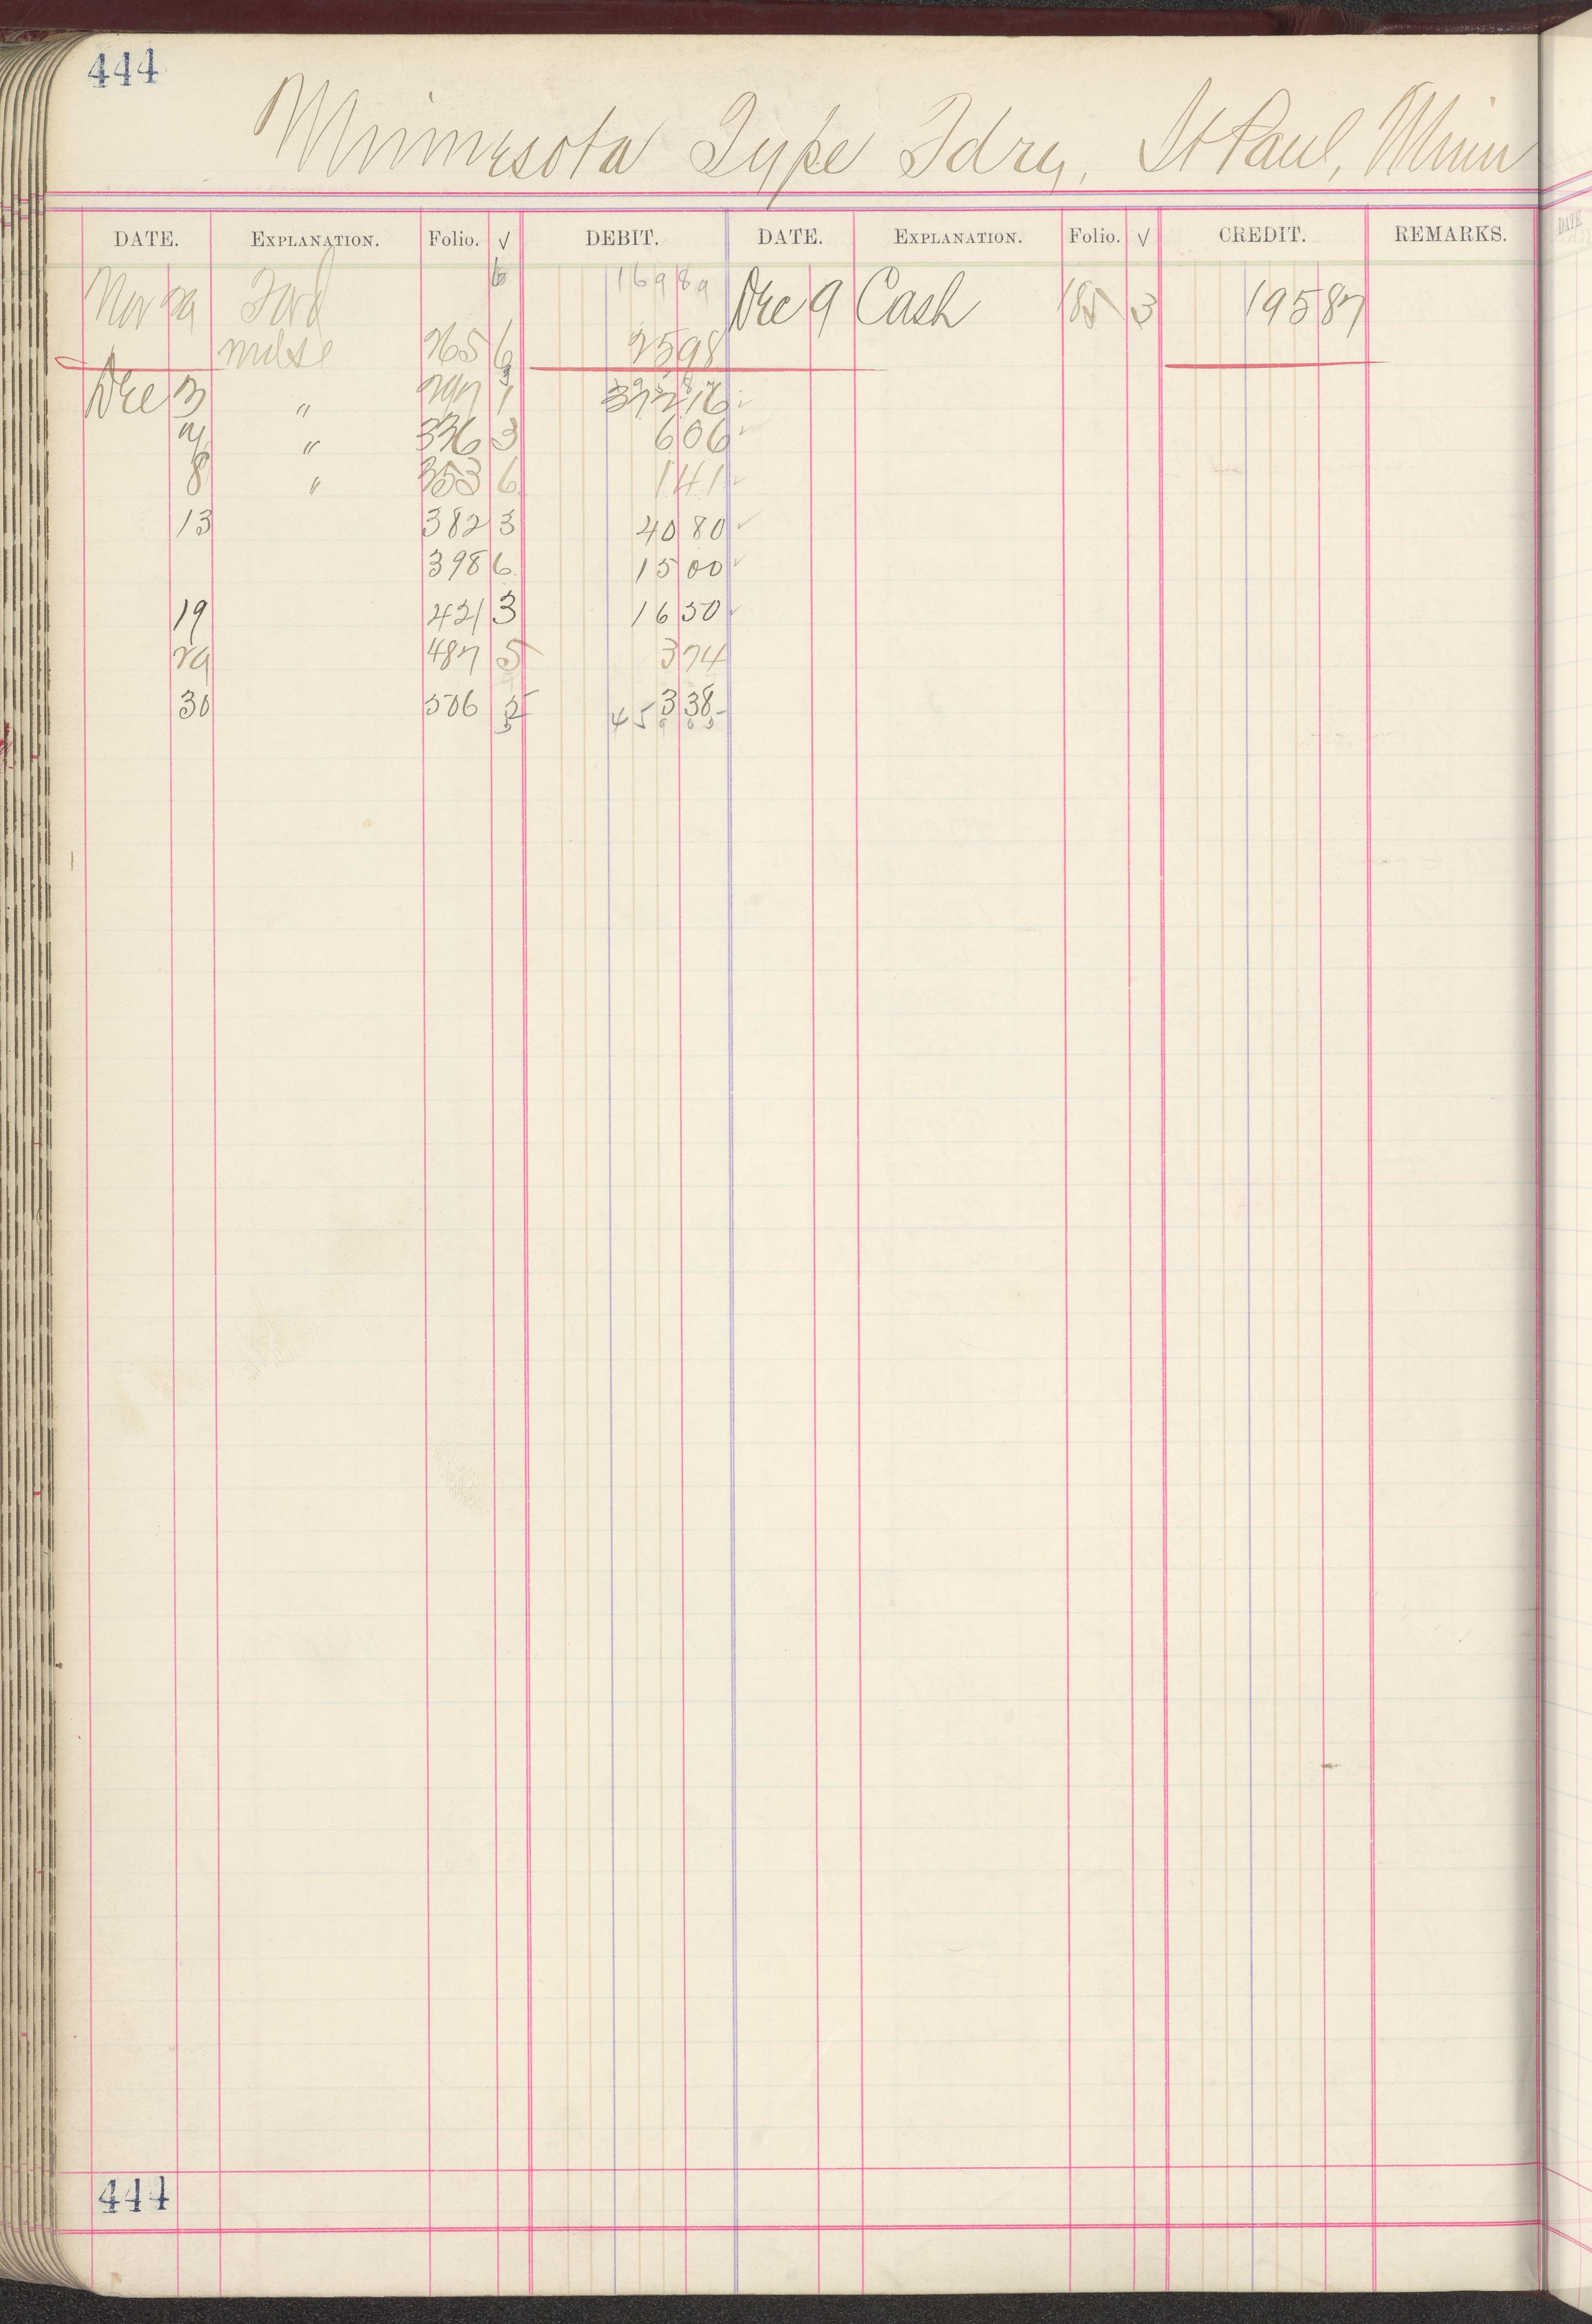 444
Minnesota Type Fdry, St Paul, Minn
DATE. EXPLANATION. Folio. √ DEBIT. DATE. EXPLANATION. Folio. √ CREDIT. REMARKS.
Nov 29 Ford 6 169 89 Dec 9 Cash 185 3 195 87
mdse 265 6 25 98
Dec 3 " 297 1
" 336 3 6 06
8 " 353 6 1 41
13 382 3 40 80
398 6 15 00
19 421 3 16 50
29 487 5 3 74
30 506 3 38
444